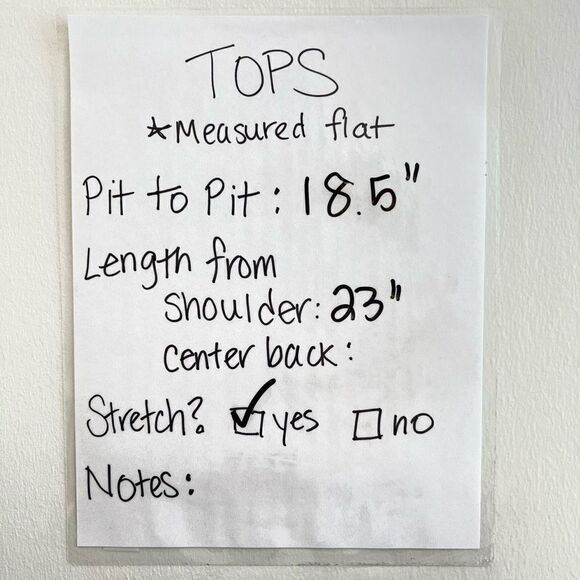 TOPS
*Measured flat
Pit to Pit: 18.5"
Length from
shoulder: 23"
center back:
Stretch? ☑ yes ☐ no
Notes: